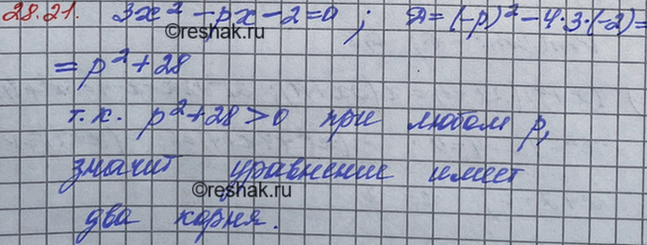 28.21. 3x² - px - 2 = 0 ; D = (-p)² - 4·3·(-2) =
= p² + 28
©reshak.ru
т.к. p² + 28 > 0 при любом p,
значит уравнение имеет
©reshak.ru
два корня.